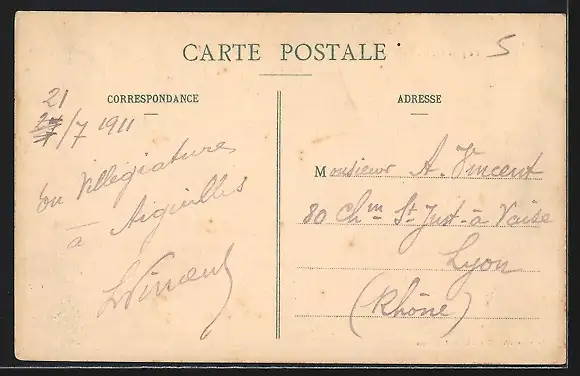 CARTE POSTALE
5
CORRESPONDANCE
21
/7 1911
En Villégiatures
à Aiguilles
LVincent
ADRESSE
Monsieur A. Vincent
80 Chm St Just-à Vaise
Lyon
(Rhône)